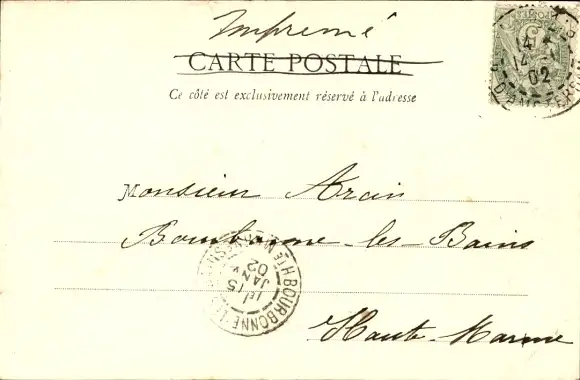 Imprimé
CARTE POSTALE
Ce côté est exclusivement réservé à l'adresse
14
02
Monsieur
Bourbonne-les-Bains
Haute-Marne
BOURBONNE-LES-
HTE M
15
JANV
02